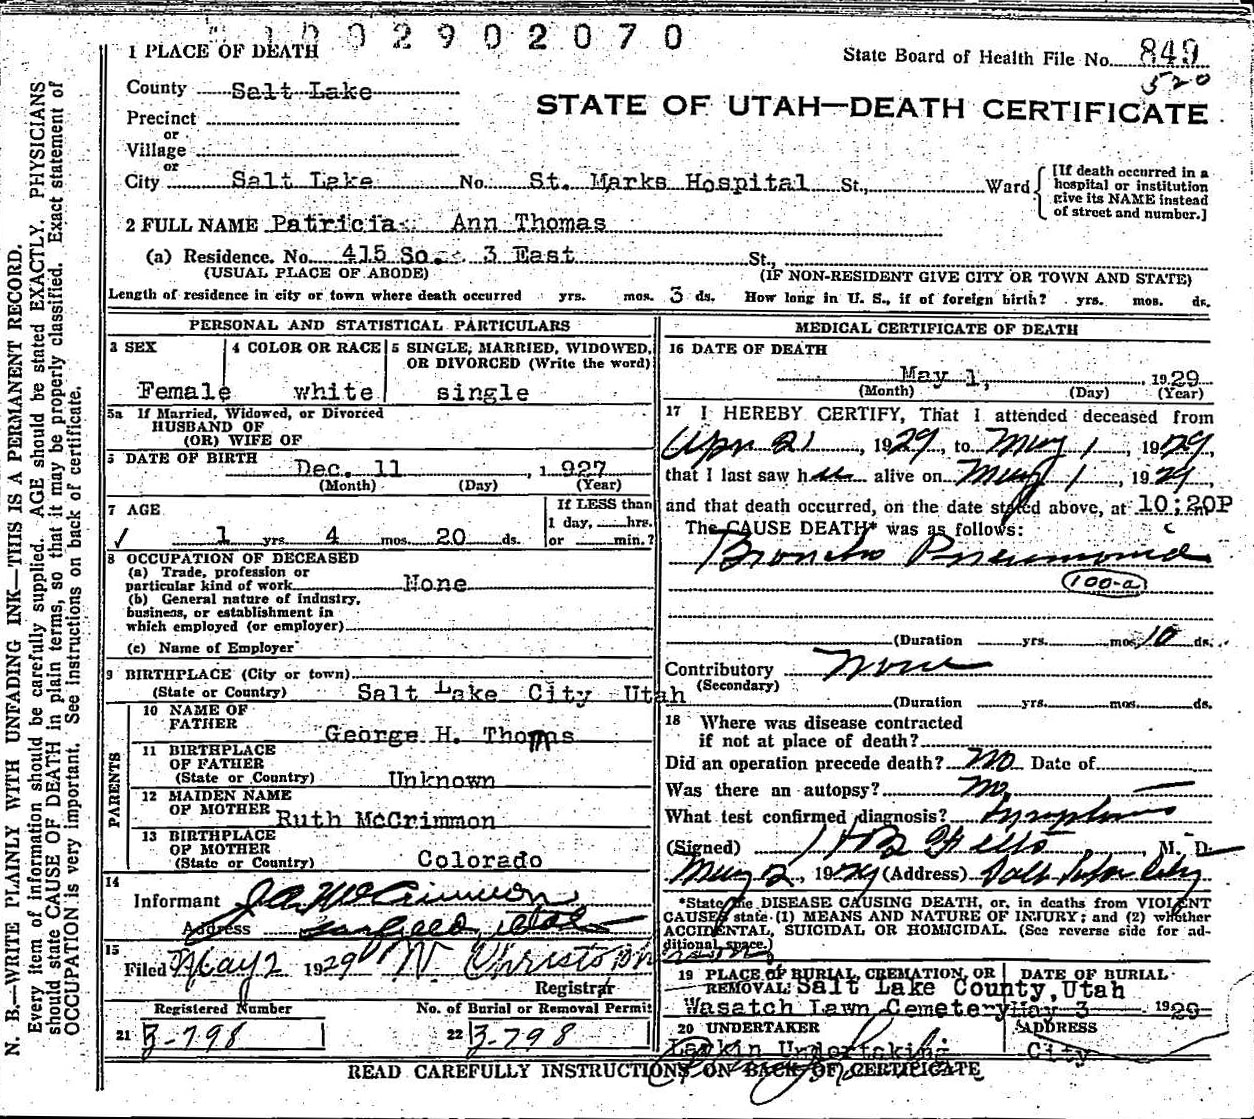 1002902070
1 PLACE OF DEATH
State Board of Health File No. 849
520
County Salt Lake
STATE OF UTAH—DEATH CERTIFICATE
Precinct
or
Village
or
City Salt Lake No. St. Marks Hospital St., Ward
[If death occurred in a
hospital or institution
give its NAME instead
of street and number.]
2 FULL NAME Patricia Ann Thomas
(a) Residence. No. 415 So. 3 East St.,
(USUAL PLACE OF ABODE) (IF NON-RESIDENT GIVE CITY OR TOWN AND STATE)
Length of residence in city or town where death occurred yrs. mos. 3 ds. How long in U. S., if of foreign birth? yrs. mos. ds.
PERSONAL AND STATISTICAL PARTICULARS
3 SEX 4 COLOR OR RACE 5 SINGLE, MARRIED, WIDOWED,
OR DIVORCED (Write the word)
Female white single
5a If Married, Widowed, or Divorced
HUSBAND OF
(OR) WIFE OF
DATE OF BIRTH
Dec. 11, 1927
(Month) (Day) (Year)
7 AGE If LESS than
1 day, hrs.
1 yrs. 4 mos. 20 ds. or min.?
8 OCCUPATION OF DECEASED
(a) Trade, profession or
particular kind of work None
(b) General nature of industry,
business, or establishment in
which employed (or employer)
(c) Name of Employer
9 BIRTHPLACE (City or town)
(State or Country) Salt Lake City Utah
PARENTS
10 NAME OF
FATHER George H. Thomas
11 BIRTHPLACE
OF FATHER
(State or Country) Unknown
12 MAIDEN NAME
OF MOTHER Ruth McCrimmon
13 BIRTHPLACE
OF MOTHER
(State or Country) Colorado
14
Informant McCrimmon
Address
15
Filed May 2 1929 W Christopherson
Registrar
Registered Number No. of Burial or Removal Permit
21 3-798 22 3-798
MEDICAL CERTIFICATE OF DEATH
16 DATE OF DEATH
May 1, 1929
(Month) (Day) (Year)
17 I HEREBY CERTIFY, That I attended deceased from
Apr 21, 1929, to May 1, 1929,
that I last saw her alive on May 1, 1929
and that death occurred, on the date stated above, at 10:20P
The CAUSE DEATH* was as follows:
Broncho Pneumonia
100-a
(Duration yrs. mos. 10 ds.
Contributory None
(Secondary)
(Duration yrs. mos. ds.
18 Where was disease contracted
if not at place of death?
Did an operation precede death? No Date of
Was there an autopsy? No
What test confirmed diagnosis? Symptoms
(Signed) M. D.
May 2, 1929 (Address) Salt Lake City
*State the DISEASE CAUSING DEATH, or, in deaths from VIOLENT
CAUSES state (1) MEANS AND NATURE OF INJURY; and (2) whether
ACCIDENTAL, SUICIDAL OR HOMICIDAL. (See reverse side for ad-
ditional space.)
19 PLACE OF BURIAL, CREMATION, OR DATE OF BURIAL
REMOVAL: Salt Lake County, Utah
Wasatch Lawn Cemetery May 3 1929
20 UNDERTAKER ADDRESS
Larkin Undertaking City
READ CAREFULLY INSTRUCTIONS ON BACK OF CERTIFICATE
N. B.—WRITE PLAINLY WITH UNFADING INK—THIS IS A PERMANENT RECORD.
Every item of information should be carefully supplied. AGE should be stated EXACTLY. PHYSICIANS
should state CAUSE OF DEATH in plain terms, so that it may be properly classified. Exact statement of
OCCUPATION is very important. See instructions on back of certificate.